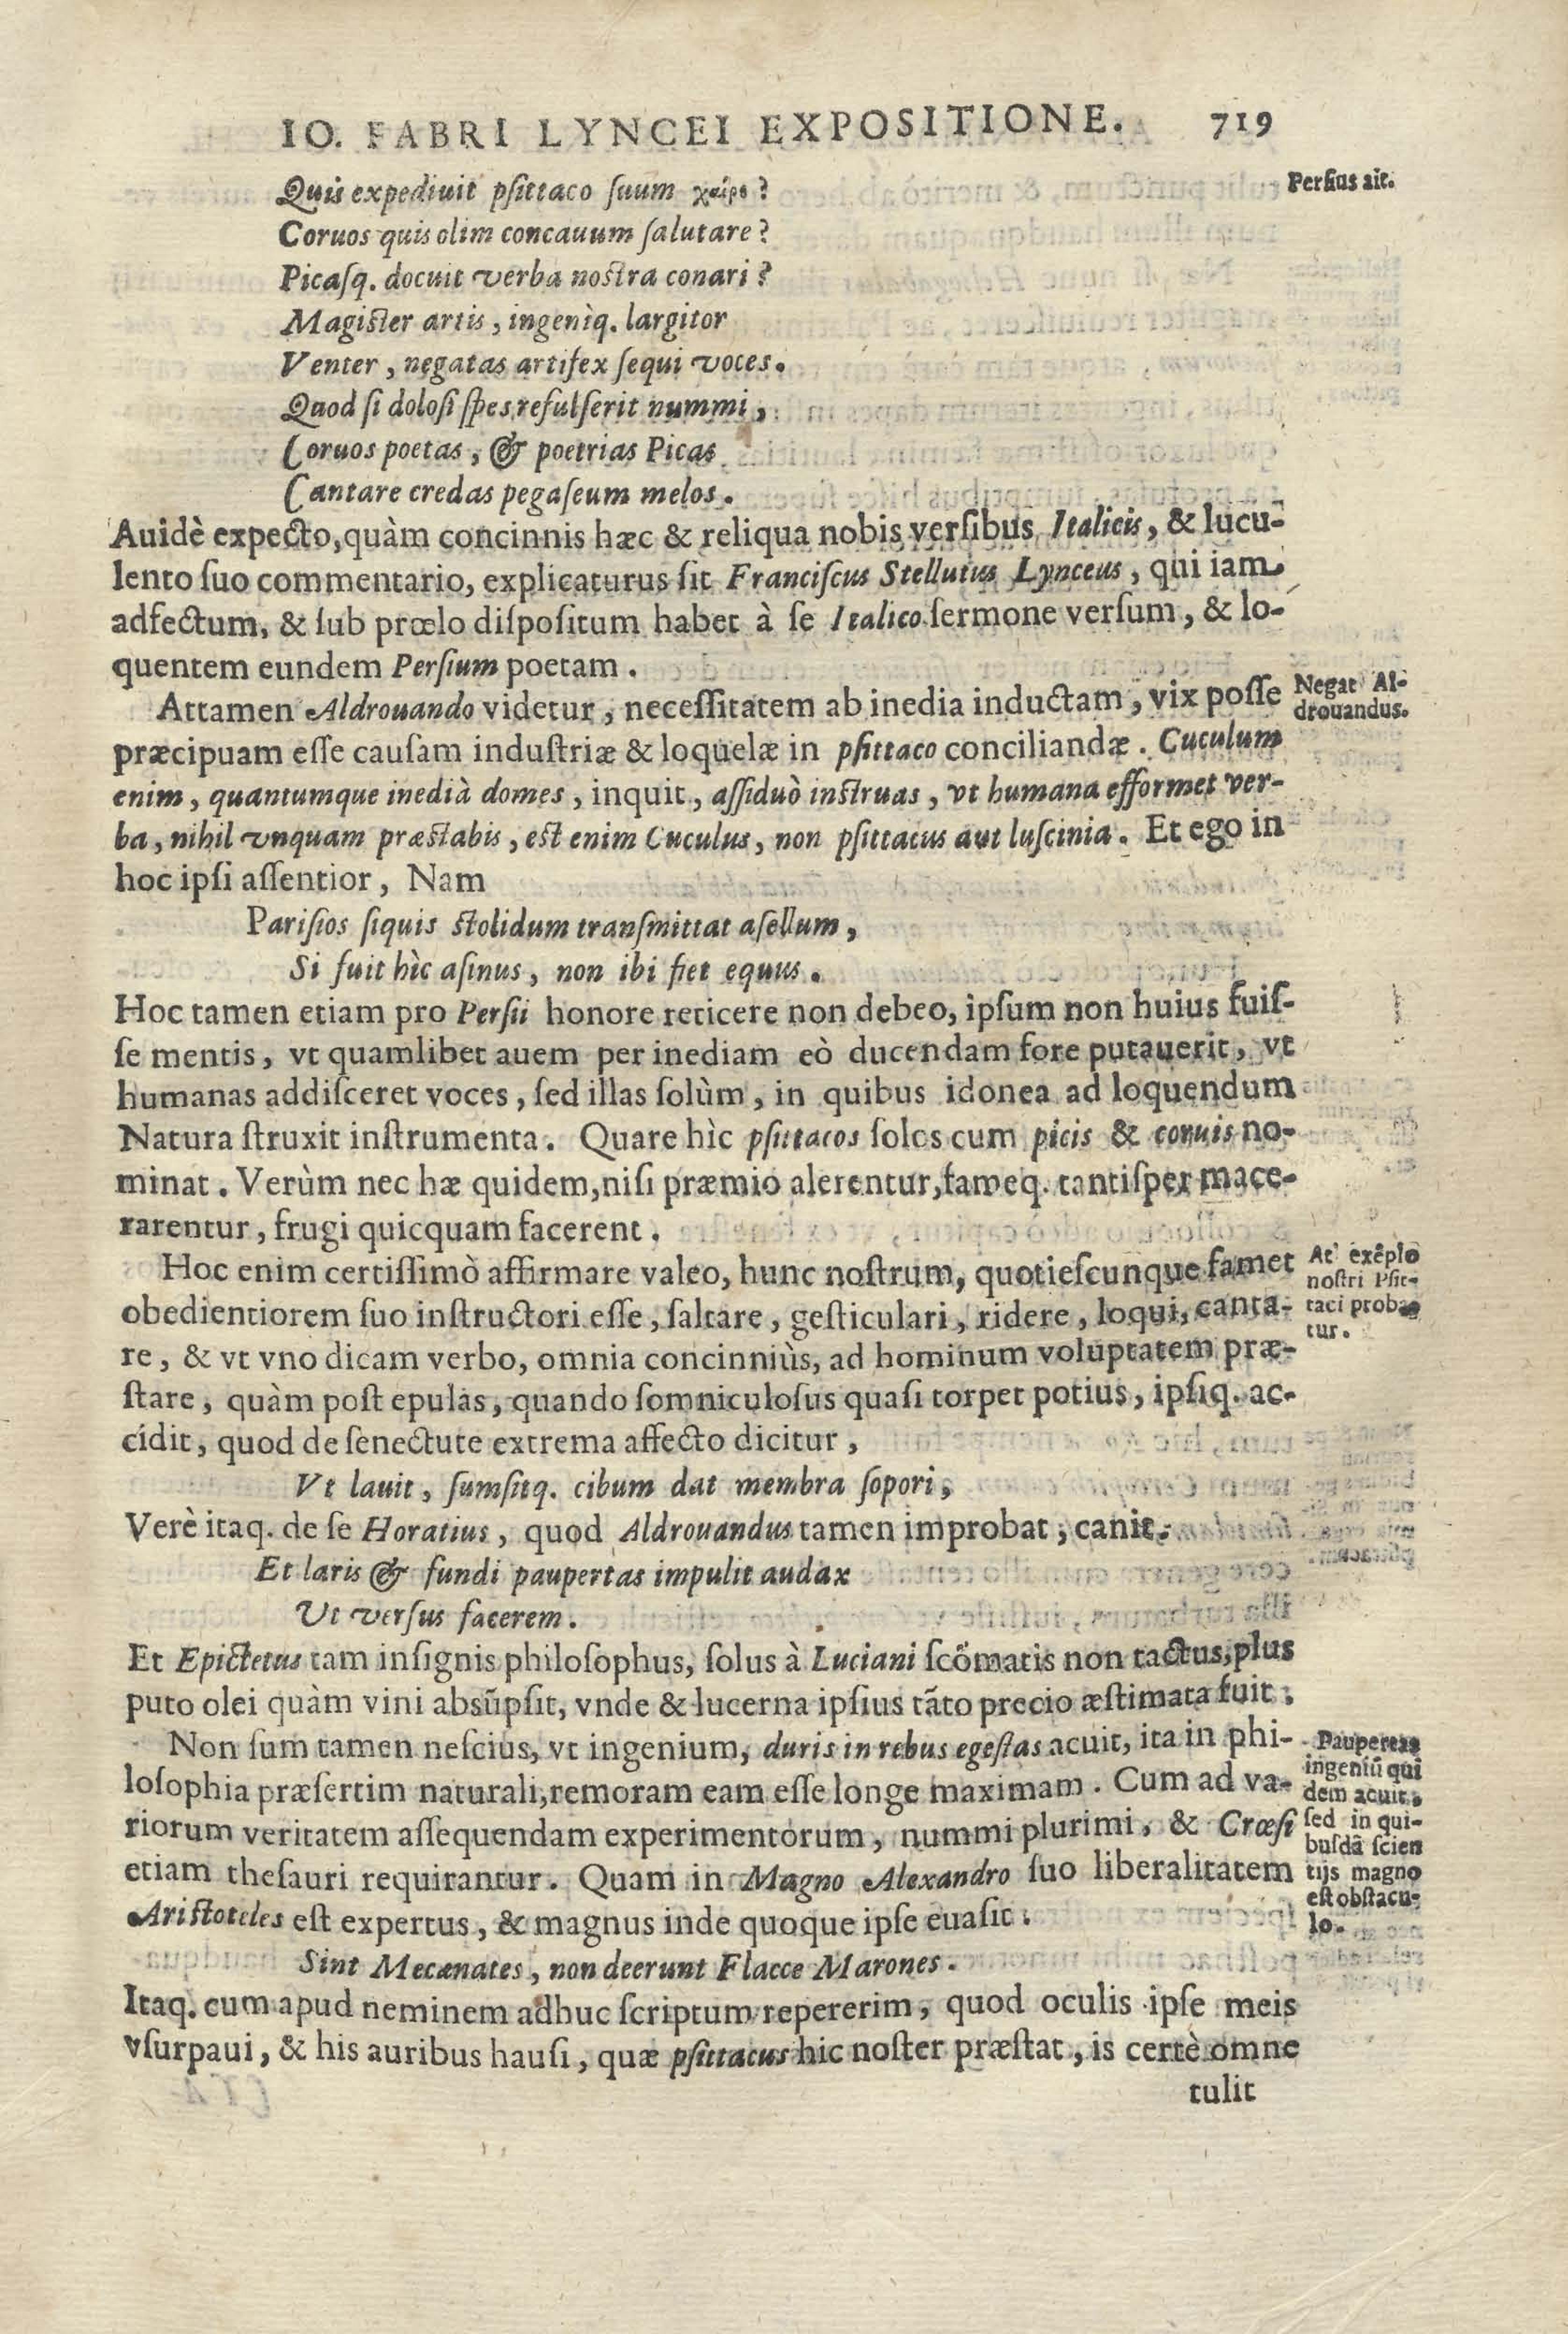 IO. FABRI LYNCEI EXPOSITIONE. 719
Quis expediuit psittaco suum χαῖρε?
Persius ait.
Coruos quis olim concauum salutare?
Picasq. docuit verba nostra conari?
Magister artis, ingenìq. largitor
Venter, negatas artifex sequi voces.
Quod si dolosi spes refulserit nummi,
Coruos poetas, & poetrias Picas
Cantare credas pegaseum melos.
Auidè expecto, quàm concinnis hæc & reliqua nobis versibus Italicis, & lucu-
lento suo commentario, explicaturus sit Franciscus Stellutus Lynceus, qui iam
adfectum, & sub prœlo dispositum habet à se Italico sermone versum, & lo-
quentem eundem Persium poetam.
Attamen Aldrouando videtur, necessitatem ab inedia inductam, vix posse
Negat Al-
drouandus.
præcipuam esse causam industriæ & loquelæ in psittaco conciliandæ. Cuculum
enim, quantumque inedià domes, inquit, assiduò instruas, vt humana efformet ver-
ba, nihil vnquam præstabis, est enim Cuculus, non psittacus aut luscinia. Et ego in
hoc ipsi assentior, Nam
Parisios siquis stolidum transmittat asellum,
Si fuit hìc asinus, non ibi fiet equus.
Hoc tamen etiam pro Persii honore reticere non debeo, ipsum non huius fuis-
se mentis, vt quamlibet auem per inediam eò ducendam fore putauerit, vt
humanas addisceret voces, sed illas solùm, in quibus idonea ad loquendum
Natura struxit instrumenta. Quare hìc psittacos solos cum picis & coruis no-
minat. Verùm nec hæ quidem, nisi præmio alerentur, fameq. tantisper mace-
rarentur, frugi quicquam facerent.
Hoc enim certissimò affirmare valeo, hunc nostrum, quotiescunque famet
At exẽplo
nostri Psit-
taci proba
tur.
obedientiorem suo instructori esse, saltare, gesticulari, ridere, loqui, canta-
re, & vt vno dicam verbo, omnia concinniùs, ad hominum voluptatem præ-
stare, quàm post epulas, quando somniculosus quasi torpet potius, ipsiq. ac-
cidit, quod de senectute extrema affecto dicitur,
Vt lauit, sumsitq. cibum dat membra sopori,
Verè itaq. de se Horatius, quod Aldrouandus tamen improbat, canit.
Et laris & fundi paupertas impulit audax
Ut versus facerem.
Et Epictetus tam insignis philosophus, solus à Luciani scõmatis non tactus, plus
puto olei quàm vini absũpsit, vnde & lucerna ipsius tãto precio æstimata fuit.
Non sum tamen nescius, vt ingenium, duris in rebus egestas acuit, ita in phi-
Paupertas
ingeniũ qui
dem acuit,
sed in qui-
busdã scien
tijs magno
est obstacu-
lo.
losophia præsertim naturali, remoram eam esse longe maximam. Cum ad va-
riorum veritatem assequendam experimentorum, nummi plurimi, & Crœsi
etiam thesauri requirantur. Quam in Magno Alexandro suo liberalitatem
Aristoteles est expertus, & magnus inde quoque ipse euasit.
Sint Mecænates, non deerunt Flacce Marones.
Itaq. cum apud neminem adhuc scriptum repererim, quod oculis ipse meis
vsurpaui, & his auribus hausi, quæ psittacus hic noster præstat, is certè omne
tulit